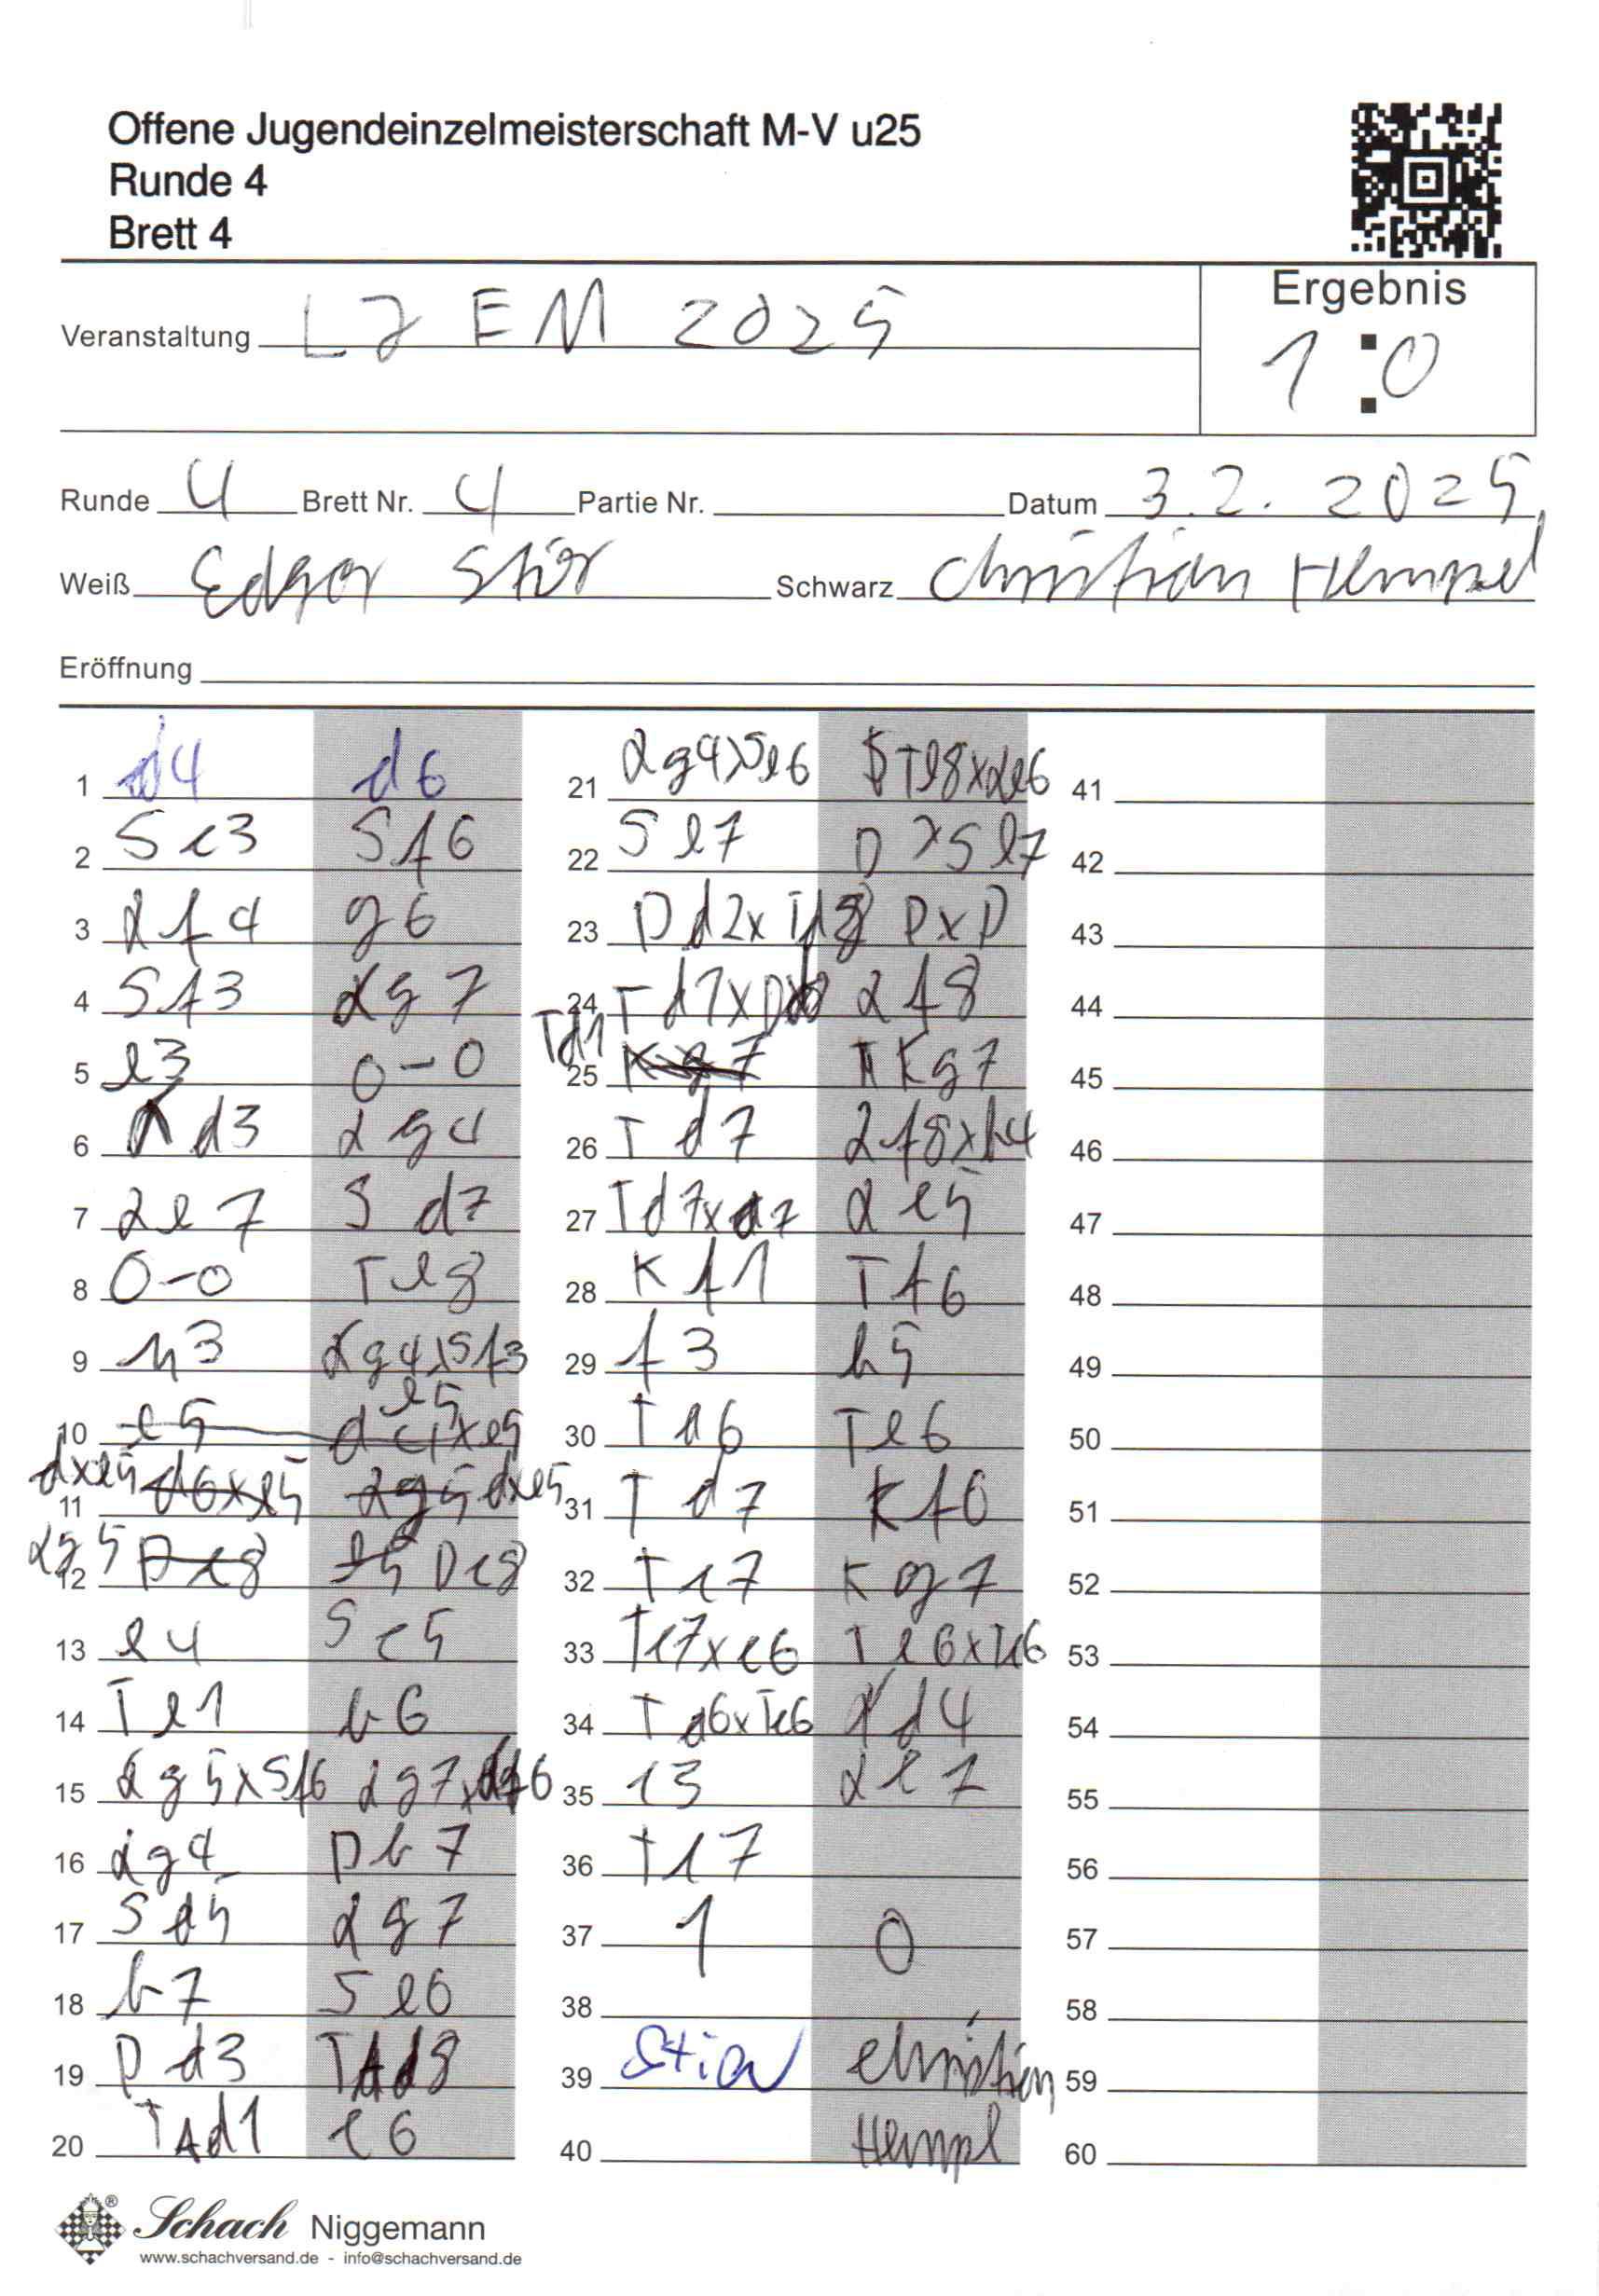 Offene Jugendeinzelmeisterschaft M-V u25
Runde 4
Brett 4
Ergebnis
1:0
Veranstaltung LJEM 2025
Runde 4 Brett Nr. 4 Partie Nr. Datum 3.2.2025
Weiß Edgar Stiør Schwarz Christian Hempel
Eröffnung
1 d4 d6
2 Sc3 Sf6
3 Lf4 g6
4 Sf3 Lg7
5 e3 0-0
6 Ld3 Lg4
7 Le7 Sd7
8 0-0 Te8
9 h3 Lg4xSf3
10 e5
11 dxe5 dxe5
12 Lg5 Dc8
13 e4 Sc5
14 Te1 b6
15 Lg5xSf6 Lg7xLf6
16 Lg4 Db7
17 Sd5 Lg7
18 b7 Se6
19 Dd3 TAd8
20 TAd1 c6
21 Lg4xSe6 Te8xLe6
22 Se7 DxSe7
23 Dd2xTd8 DxD
24 Td1xDd8 Lf8
25 Td1 Kg7
26 Td7 Lf8xb4
27 Td7xa7 Le5
28 Kf1 Tf6
29 f3 h5
30 Ta6 Te6
31 Td7 Kf6
32 Tc7 Kg7
33 Tc7xc6 Te6xTc6
34 Ta6xTc6 Ld4
35 c3 Le7
36 Tc7
37 1 0
38
39 Stiør Christian
40 Hempl
41
42
43
44
45
46
47
48
49
50
51
52
53
54
55
56
57
58
59
60
Schach Niggemann
www.schachversand.de - info@schachversand.de